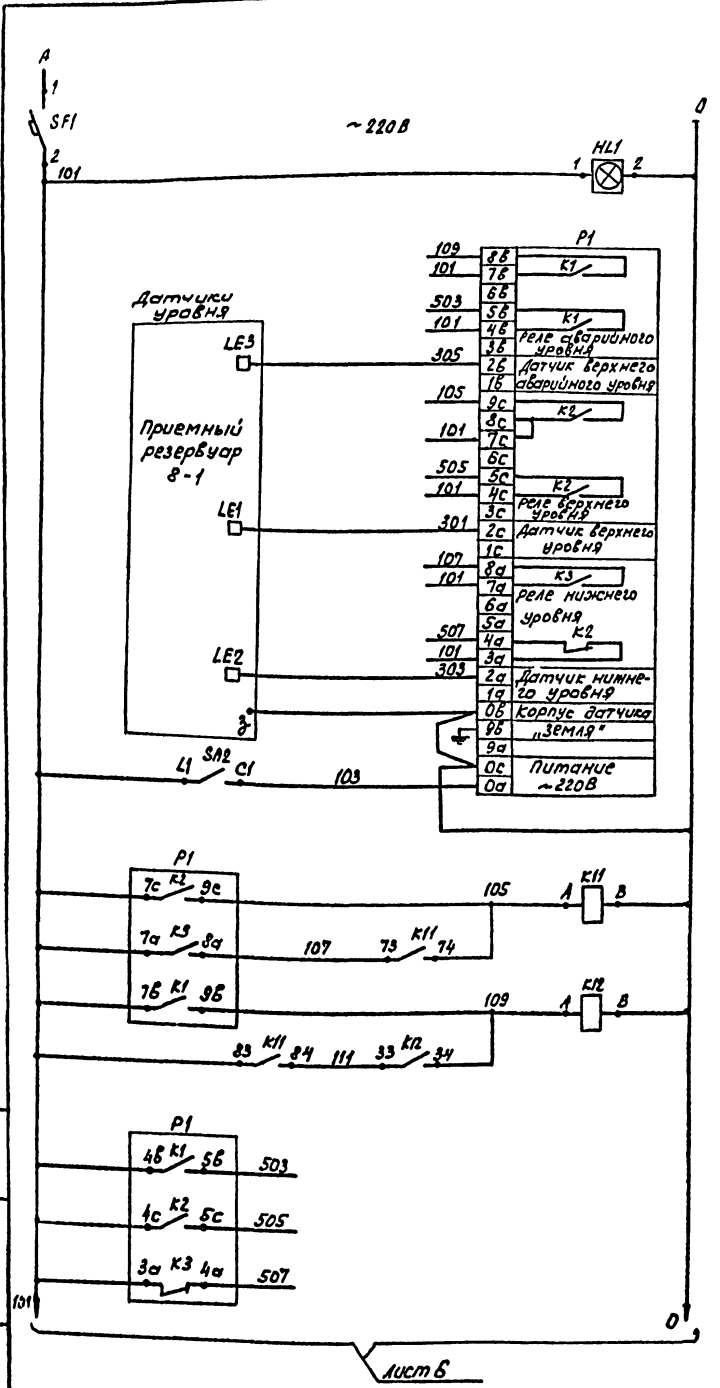 A
1
SF1
2
101
~220В
0
HL1
1
2
P1
109
8в
101
7в
К1
6в
503
5в
101
4в
К1
3в
Реле аварийного
уровня
305
2в
Датчик верхнего
1в
аварийного уровня
105
9с
8с
К2
101
7с
6с
505
5с
101
4с
К2
3с
Реле верхнего
уровня
301
2с
Датчик верхнего
1с
уровня
107
8а
101
7а
К3
6а
Реле нижнего
5а
уровня
507
4а
К2
101
3а
303
2а
Датчик нижне-
1а
го уровня
0в
Корпус датчика
9в
„Земля"
9а
0с
Питание
0а
~220В
Датчики
уровня
LE3
Приемный
резервуар
8-1
LE1
LE2
З
L1
SA2
C1
103
P1
7с К2 9с
105
A
К11
B
7а К3 8а
107
73
К11
74
7в К1 9в
109
A
К12
B
83
К11
84
111
33
К12
34
P1
4в К1 5в
503
4с К2 5с
505
3а К3 4а
507
101
0
Лист 6